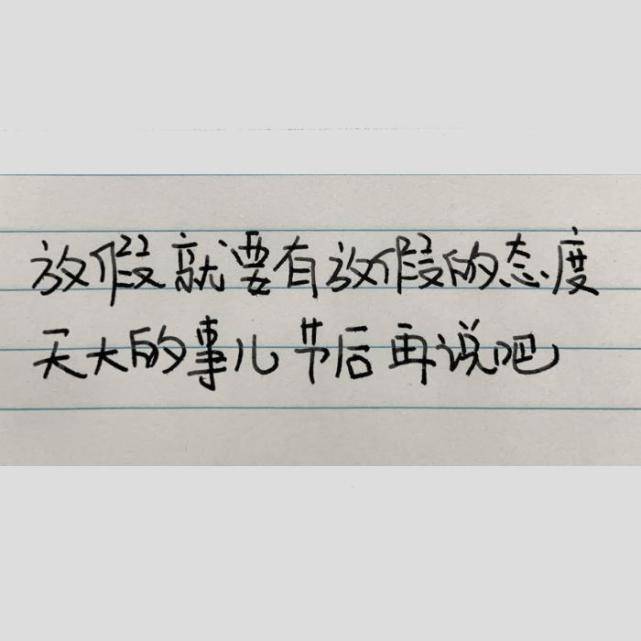 放假就要有放假的态度
天大的事儿节后再说吧